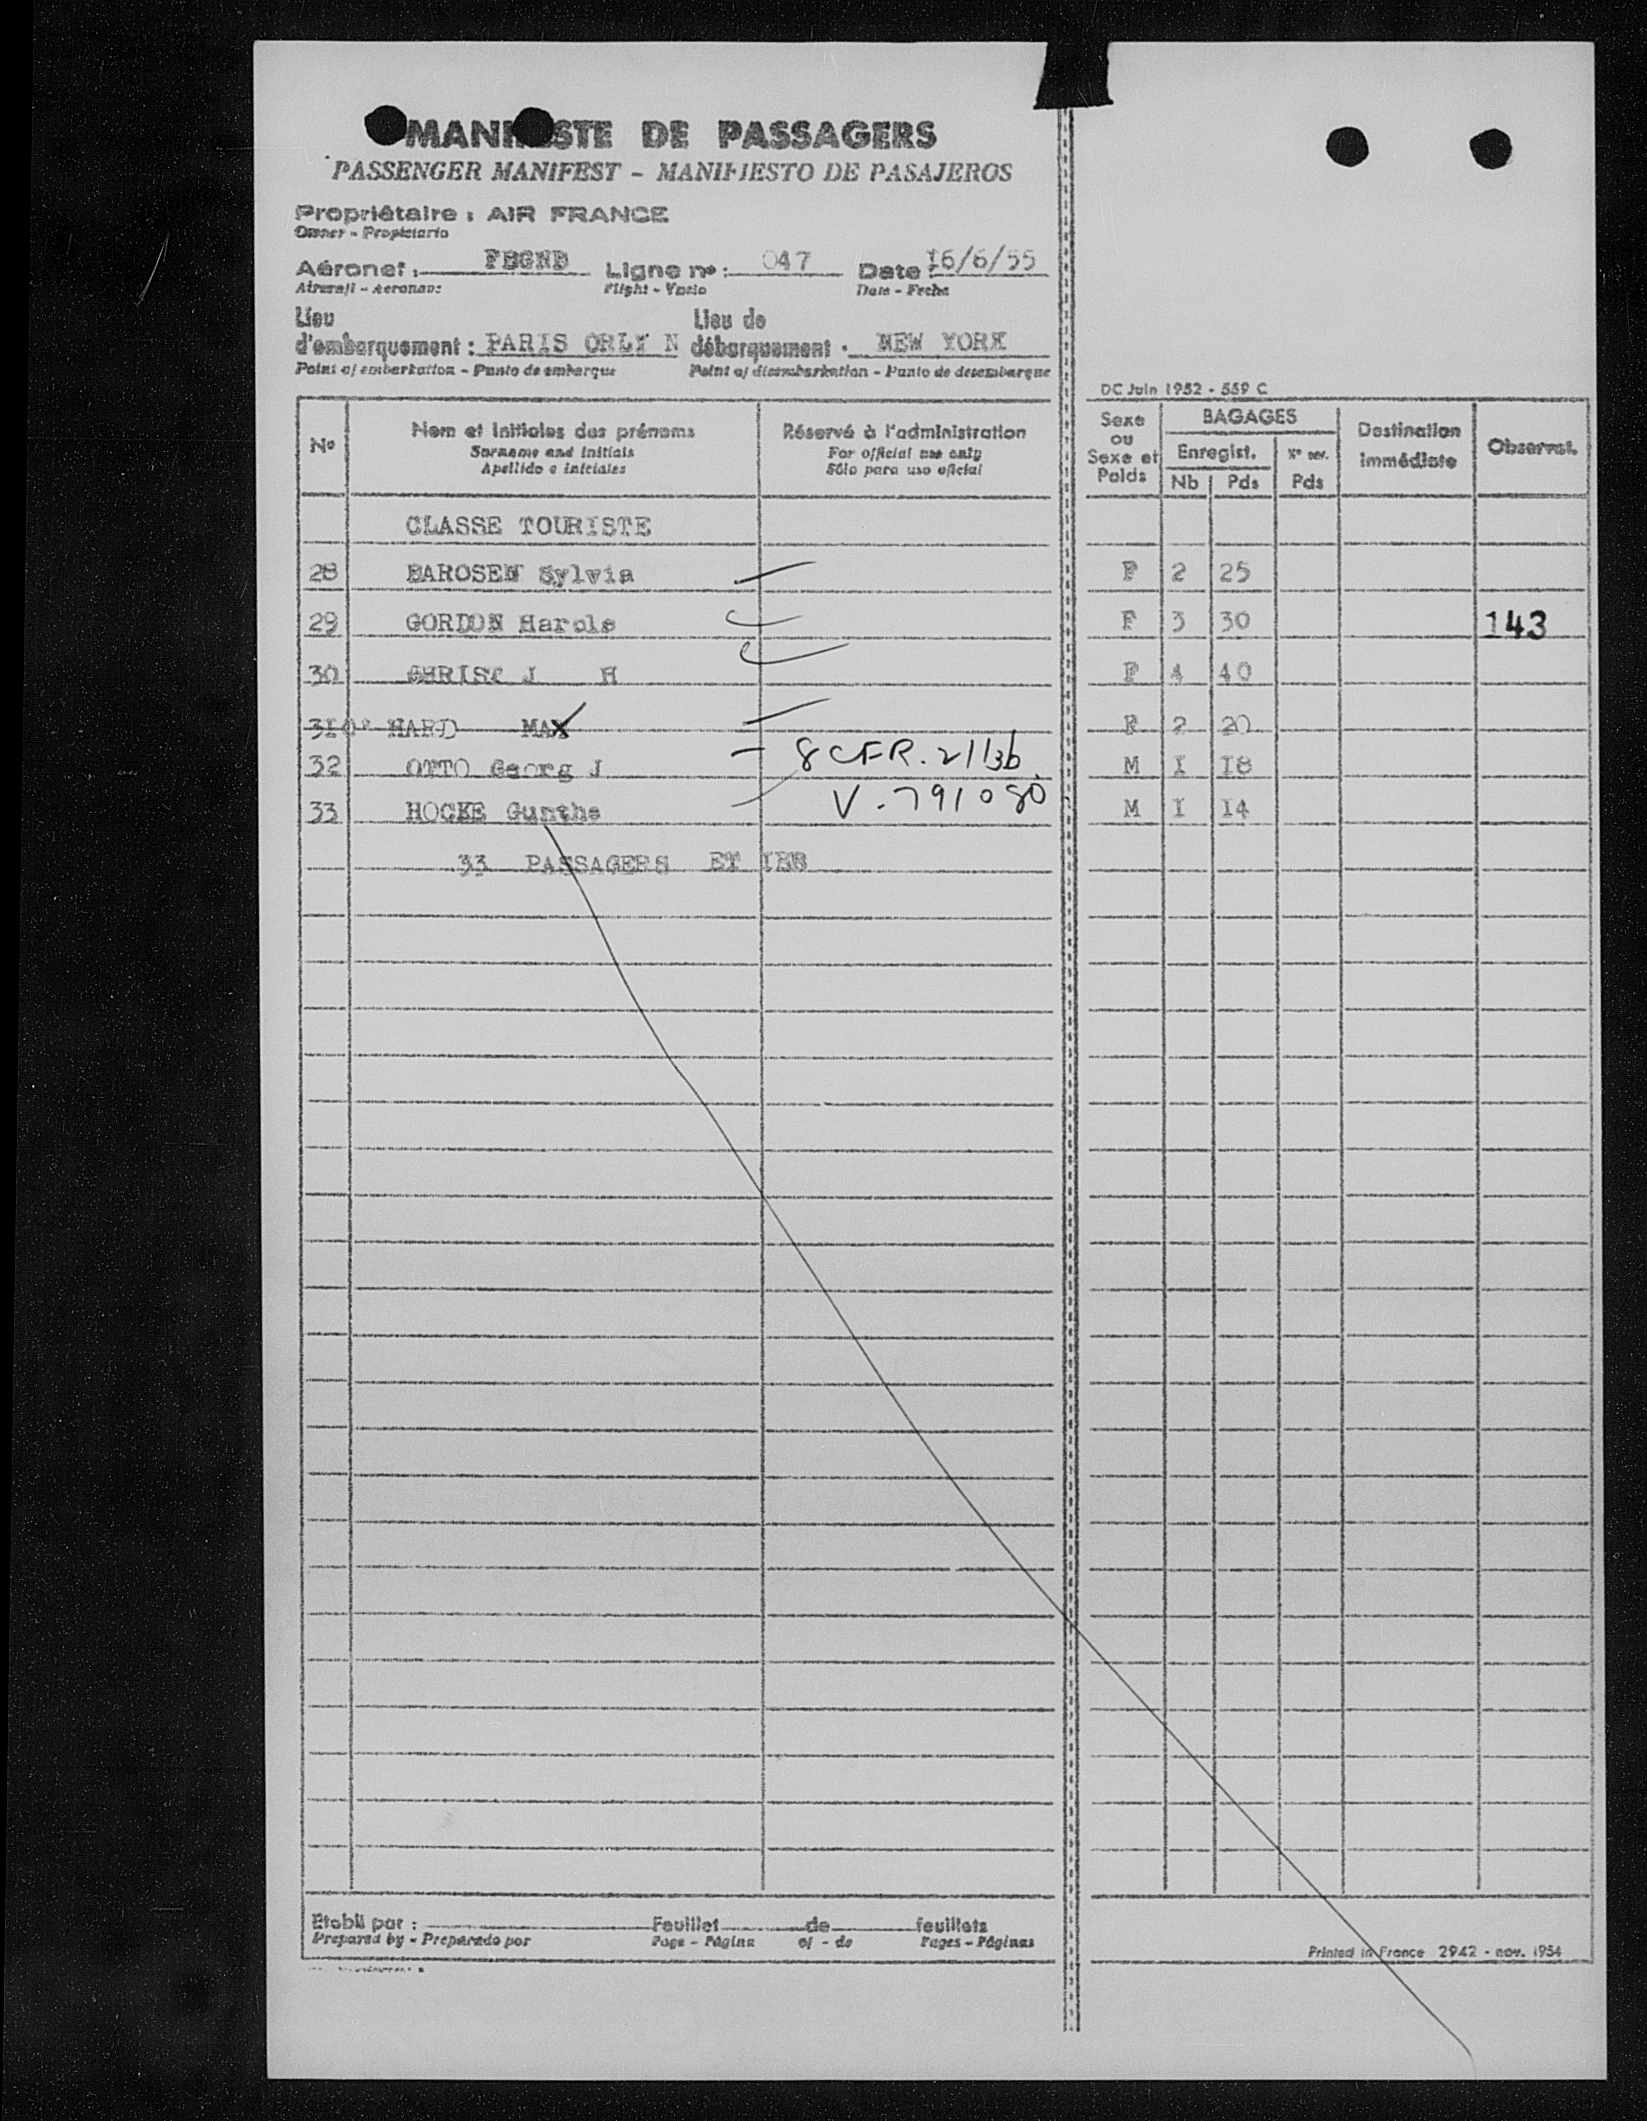 MANIFESTE DE PASSAGERS
PASSENGER MANIFEST - MANIFIESTO DE PASAJEROS
Propriétaire : AIR FRANCE
Owner - Propietario
Aéronef : FBGND Ligne nº : 047 Date 16/6/55
Aircraft - Aeronave Flight - Vuelo Date - Fecha
Lieu d'embarquement : PARIS ORLY N Lieu de débarquement : NEW YORK
Point of embarkation - Punto de embarque Point of disembarkation - Punto de desembarque
DC Juin 1952 - 559 C
Nº Nom et initiales des prénoms Réservé à l'administration Sexe ou Sexe et Poids BAGAGES Destination immédiate Observat.
Surname and initials For official use only Enregist. Nº enr.
Apellido e iniciales Sólo para uso oficial Nb Pds Pds
CLASSE TOURISTE
28 BAROSEN Sylvia F 2 25
29 GORDON Harols F 3 30 143
30 CHRIST J H F 4 40
31 HARD MAX F 2 20
32 OTTO Georg J 8 CFR. 211.3b M I I8
33 HOCKE Gunthe V-791080 M I I4
33 PASSAGERS ET
Etabli par : Feuillet de feuillets
Prepared by - Preparado por Page - Página of - de Pages - Páginas
Printed in France 2942 - nov. 1954